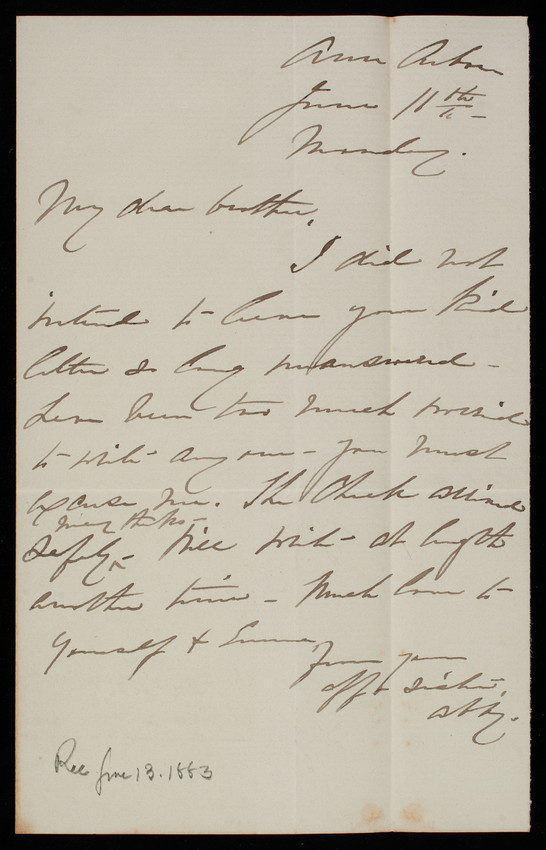 Ann Arbor
June 11th
Monday.
My dear brother,
I did not
intend to leave your kind
letter so long unanswered -
have been too much worried
to write anyone - you must
excuse me. The Check arrived
many thks -
safely - Will write at length
another time - Much love to
yourself & Emma
From your
afft sister,
Abby.
Rec June 13. 1883